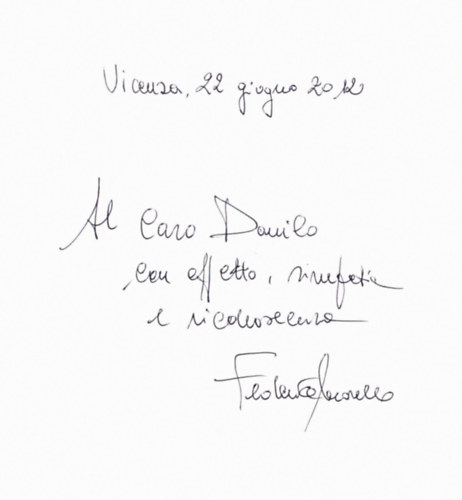 Vicenza, 22 giugno 2012
Al Caro Danilo
con affetto, simpatia
e riconoscenza